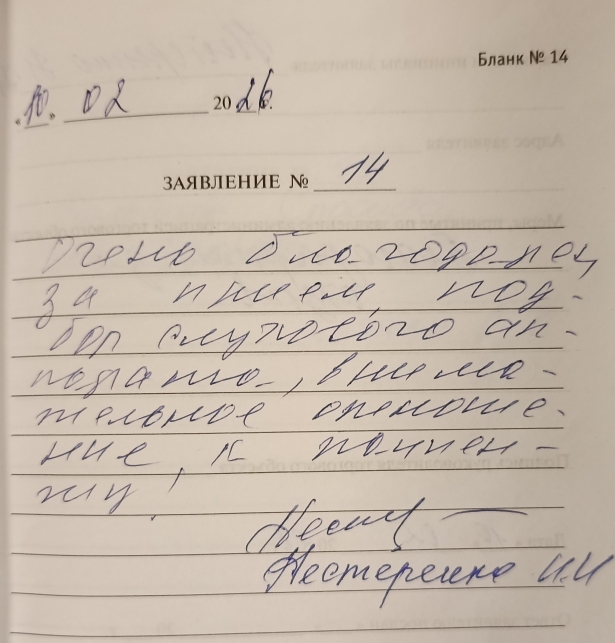 Бланк № 14
"10" 02 2026г.
ЗАЯВЛЕНИЕ № 14
Очень благодарен
за прием, под-
бор слухового ап-
парата, внима-
тельное отноше-
ние к пациен-
ту!
Нестер
Нестеренко И.И